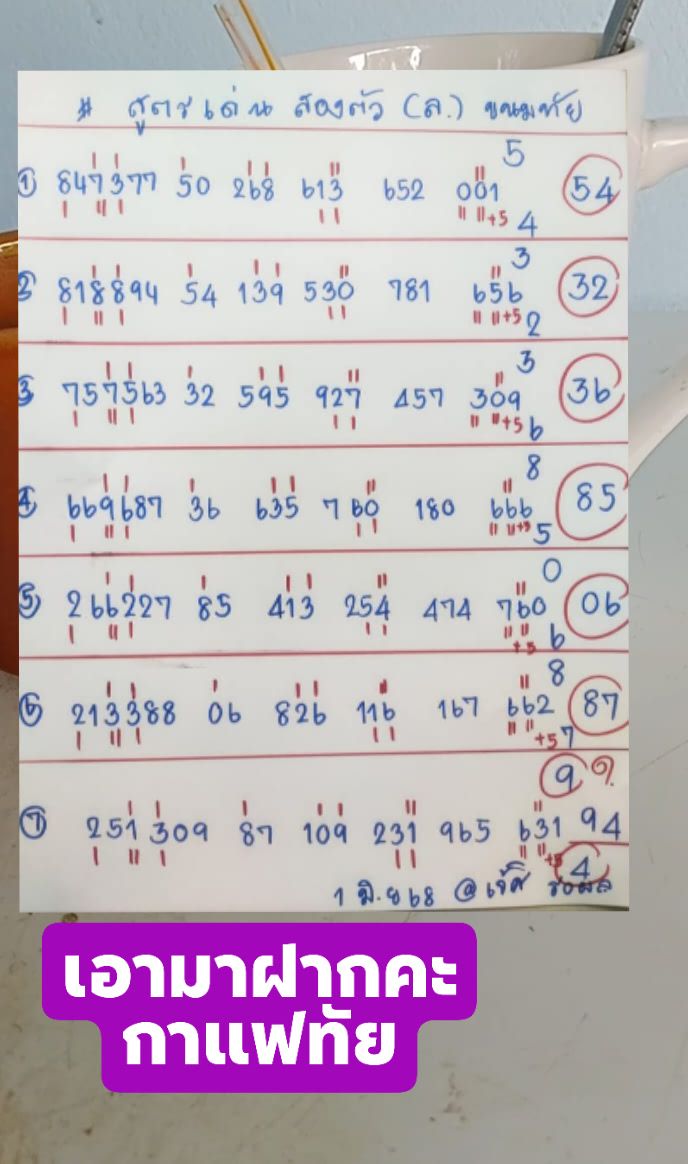 # สูตรเด่น สองตัว (ล.) ขนมทัย
5
① 847377 50 268 613 652 001 54
+5 4
3
② 818894 54 139 530 781 656 32
+5 2
3
③ 757563 32 595 927 457 309 36
+5 6
8
④ 669687 36 635 760 180 666 85
+5 5
0
⑤ 266227 85 413 254 474 760 06
+5 6
8
⑥ 213388 06 826 116 167 662 87
+5 7
9
⑦ 251309 87 109 231 965 631 94
+5 4
1 มิ.ย 68 @เจ้ศิ รอผล
เอามาฝากคะ
กาแฟทัย